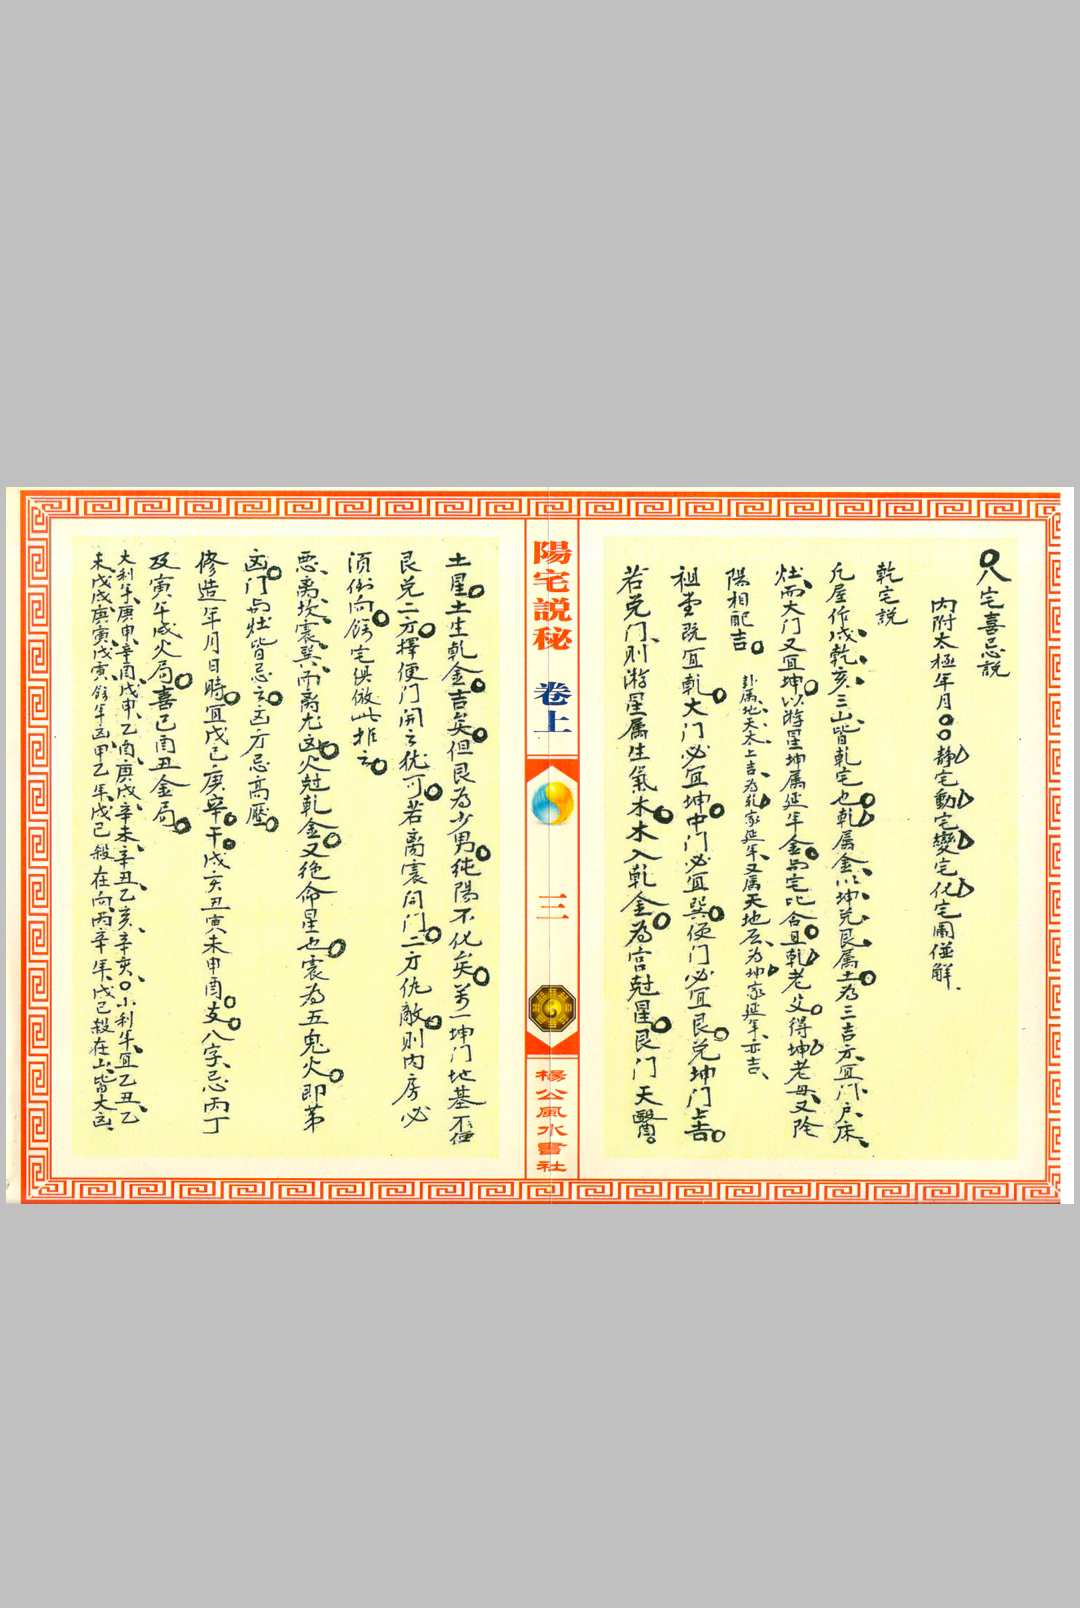 八宅喜忌説
內附太極年月 静宅動宅變宅化宅圖僅解
乾宅説
凢屋作戌乾亥三山皆乾宅也乾属金以坤兑艮属土為三吉方宜门户床
灶而大门又宜坤以游星坤属延年金与宅比合且乾老父得坤老母又陰
陽相配吉 卦属地天太上吉為乾家延年又属天地否為坤家延年亦吉
祖堂既宜乾大门必宜坤中门必宜巽便门必宜艮兑坤门上吉
若兑门则游星属生氣木木入乾金為宫尅星艮门天醫
土星土生乾金吉矣但艮為少男純陽不化矣若坤门地基不僅
艮兑二方擇便门開之犹可若离震同门二方仇敵则內房必
須倒向餘宅俱倣此推之
悪离坎震巽而离尤凶火尅乾金又绝命星也震為五鬼火即苐
凶门与灶皆忌之凶方忌高壓
修造年月日時宜戊己庚辛干戌亥丑寅未申酉支八字忌丙丁
及寅午戌火局喜己酉丑金局
大利年庚申辛酉戊申乙酉庚戌辛未辛丑乙亥辛亥小利年宜乙丑乙
未戊戌庚寅戊寅餘年凶甲乙年戊己殺在向丙辛年戊己殺在山皆大凶
陽宅説秘 卷上
三
楊公風水書社